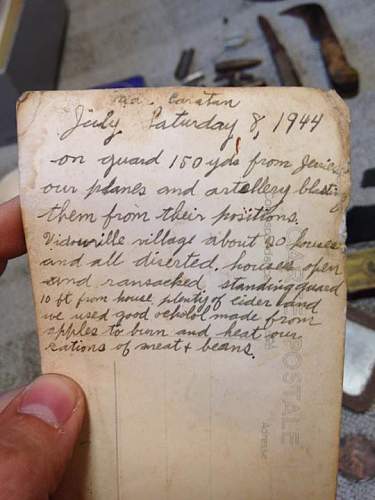 nia. Caratan
July Saturday 8, 1944
on guard 150 yds from Jerries
our planes and artellery blasting
them from their positions.
Vidouville village about 20 houses
and all diserted. houses open
and ransacked. standing guard
10 ft from house, plenty of cider and
we used good ochohol made from
apples to burn and heat our
rations of meat & beans.
CARTE POSTALE
Adresse